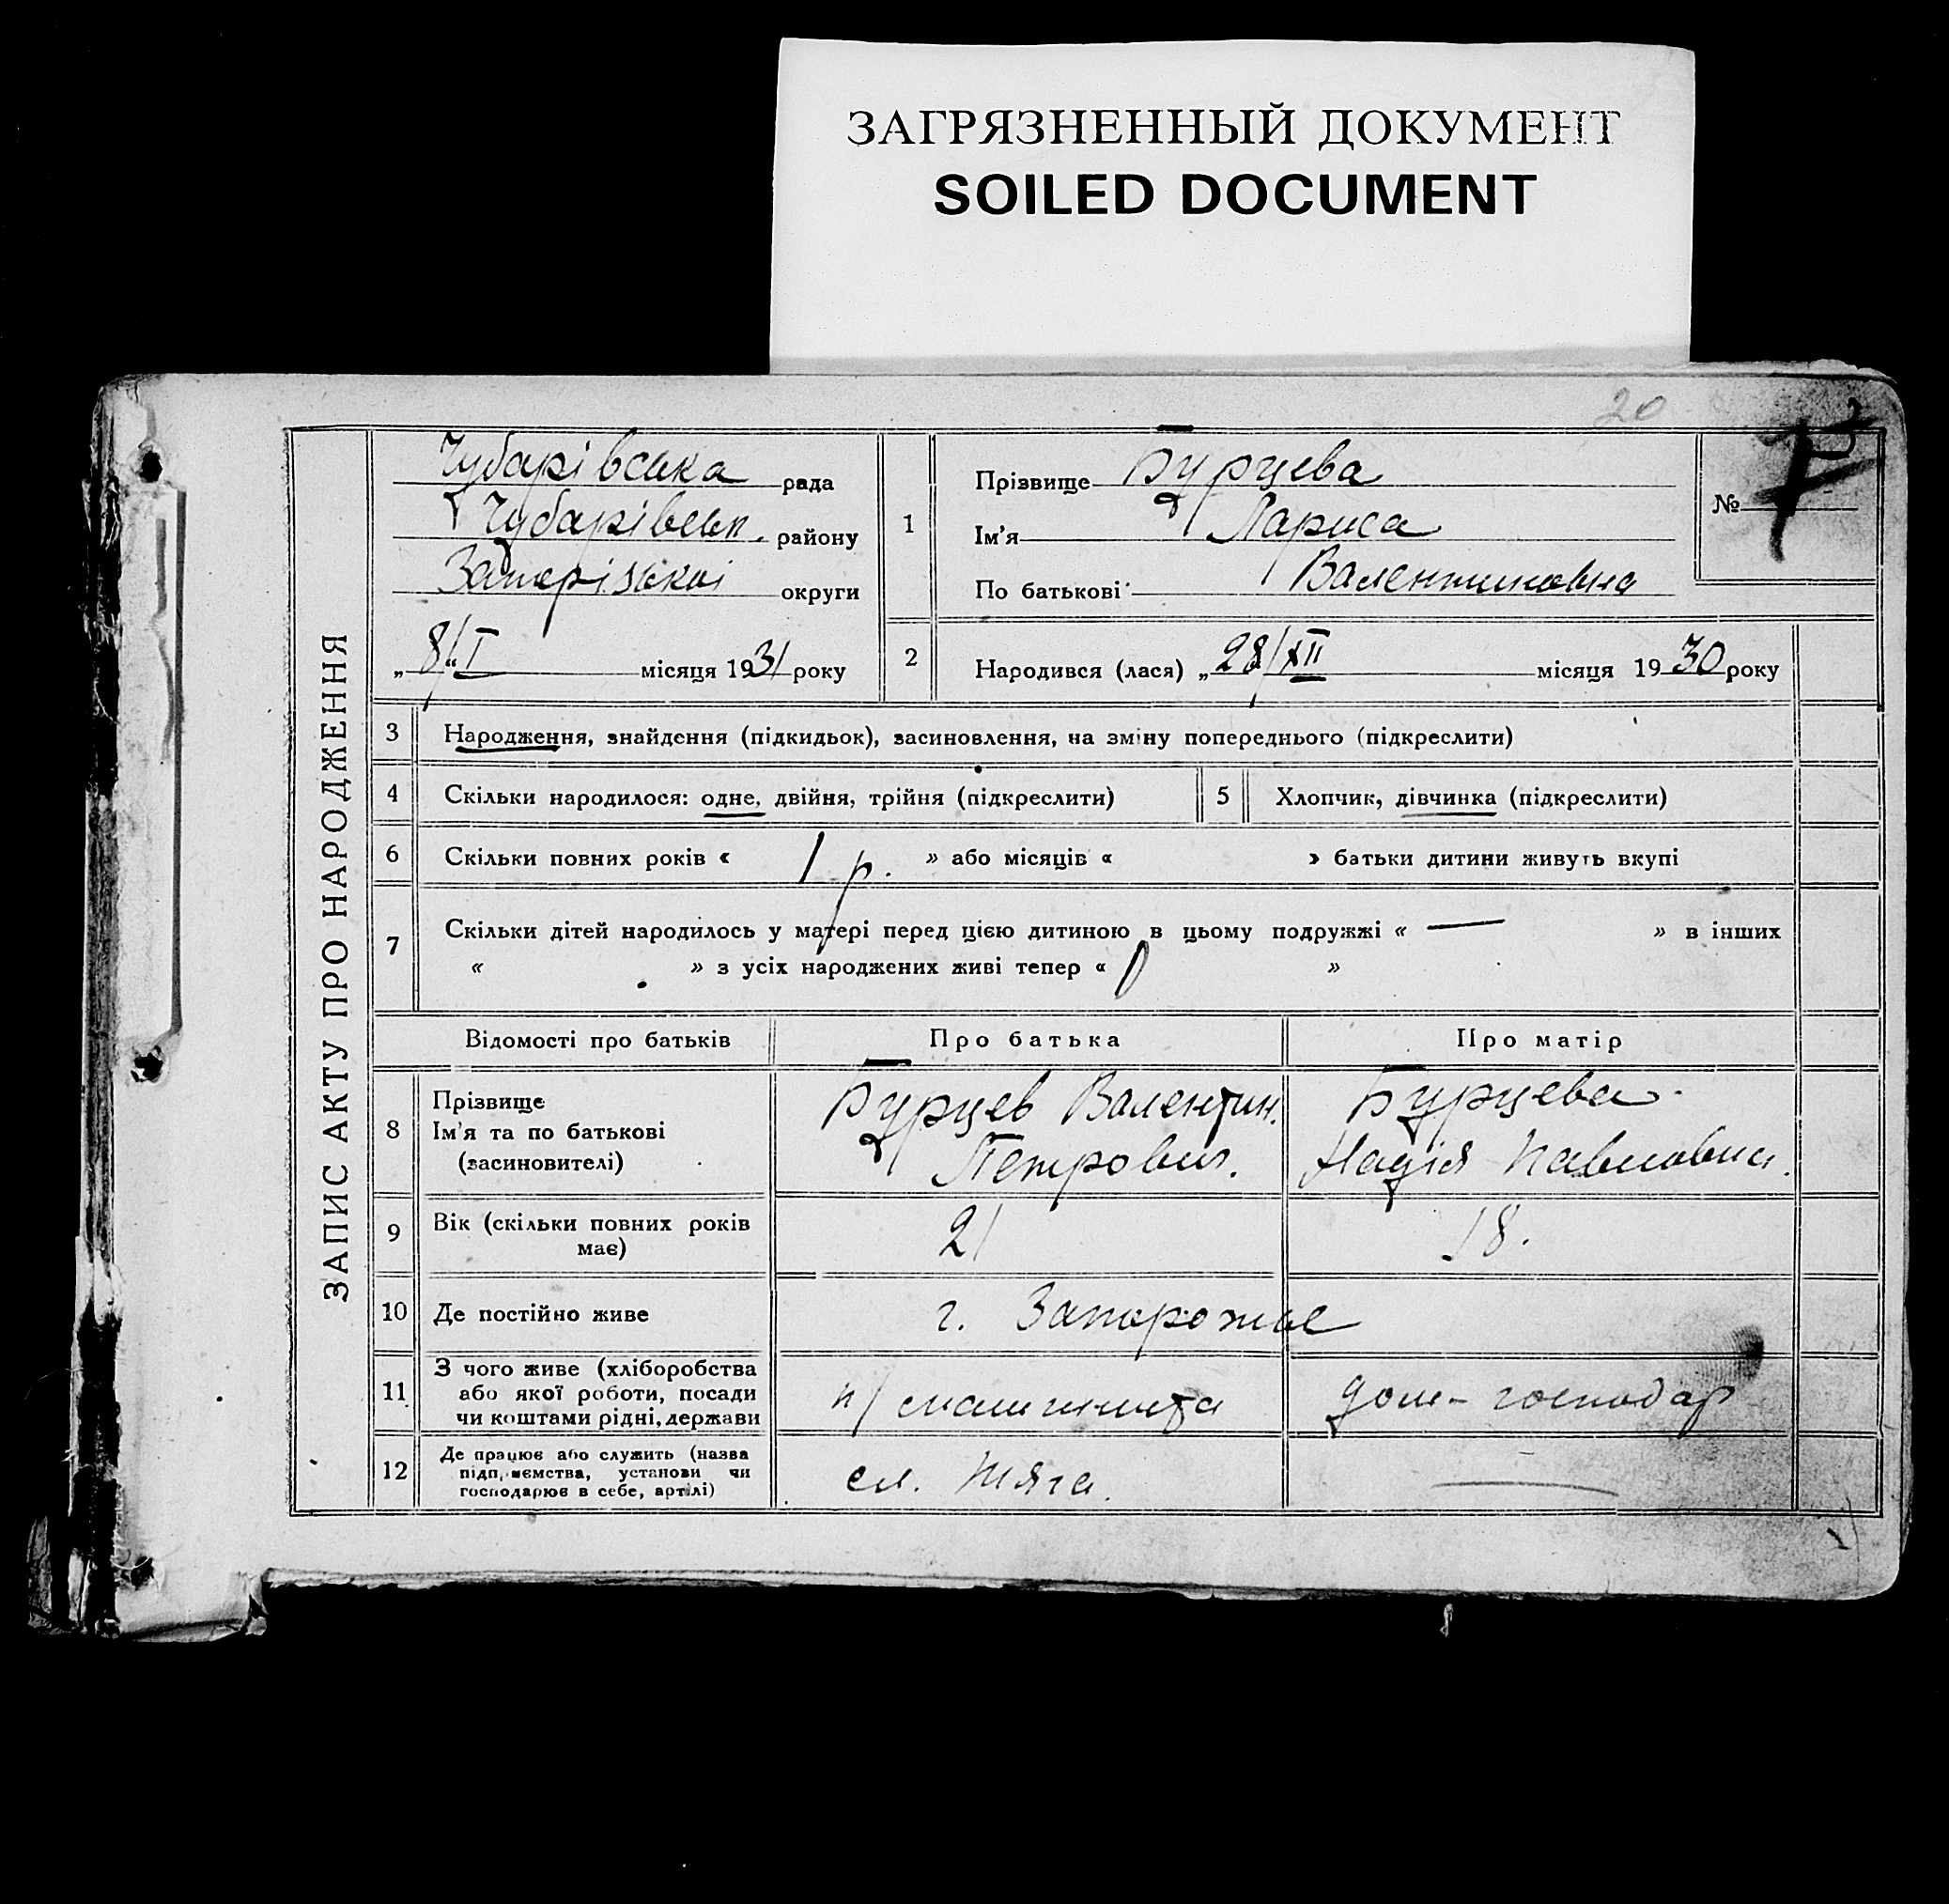 ЗАГРЯЗНЕННЫЙ ДОКУМЕНТ
SOILED DOCUMENT
20
ЗАПИС АКТУ ПРО НАРОДЖЕННЯ
Чубарівська рада
Чубарівськ. району
Запорізької округи
„ 8/I “ місяця 1931 року
1
Прізвище Бурцева
Ім'я Лариса
По батькові Валентиновна
№
2 Народився (лася) „ 28/XII місяця 1930 року
3 Народження, знайдення (підкидьок), засиновлення, на зміну попереднього (підкреслити)
4 Скільки народилося: одне, двійня, трійня (підкреслити) 5 Хлопчик, дівчинка (підкреслити)
6 Скільки повних років « 1 р. » або місяців « » батьки дитини живуть вкупі
7 Скільки дітей народилось у матері перед цією дитиною в цьому подружжі « — » в інших
« » з усіх народжених живі тепер « »
Відомості про батьків Про батька Про матір
8 Прізвище
Ім'я та по батькові
(засиновителі)
Бурцев Валентин.
Петрович.
Бурцева
Надія Павловна.
9 Вік (скільки повних років
має)
21 18.
10 Де постійно живе г. Запорожье
11 З чого живе (хліборобства
або якої роботи, посади
чи коштами рідні, держави
п/машиніста дом-господар
12 Де працює або служить (назва
підприємства, установи чи
господарює в себе, артілі)
сл. тяга. —